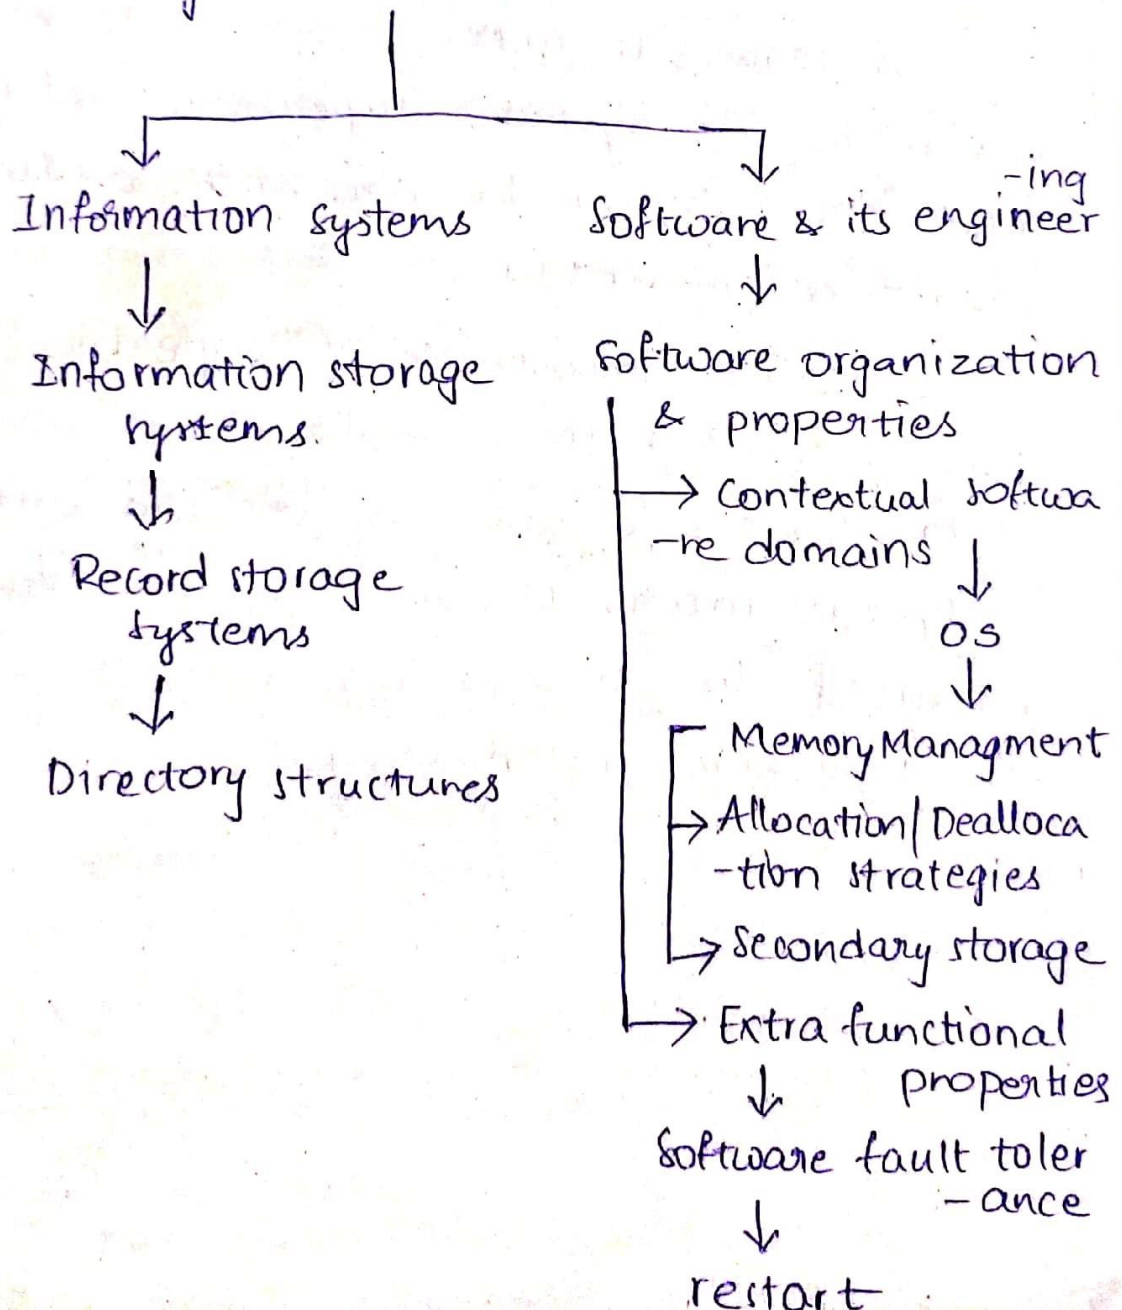 Information systems
Information storage
systems.
Record storage
systems
Directory structures
-ing
Software & its engineer
Software organization
& properties
Contextual softwa
-re domains
OS
Memory Managment
Allocation/Dealloca
-tion strategies
Secondary storage
Extra functional
properties
Software fault toler
-ance
restart